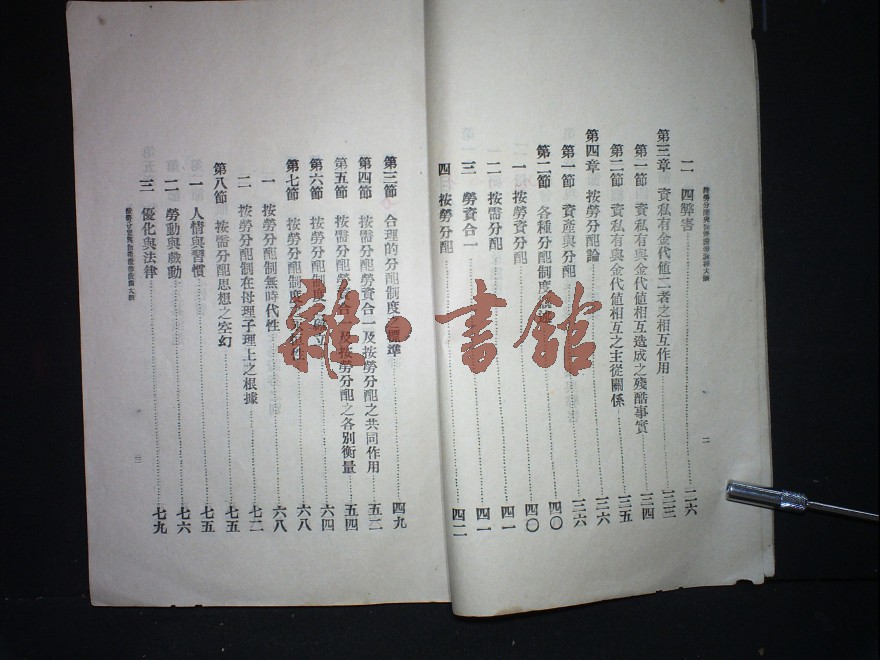 二 四弊害 二六
第三章 資私有與金代値二者之相互作用 三三
第一節 資私有與金代値相互造成之殘酷事實 三四
第二節 資私有與金代値相互之主從關係 三五
第四章 按勞分配論 三六
第一節 資產與分配 三六
第二節 各種分配制度 四〇
一 按勞資分配 四〇
二 按需分配 四一
三 勞資合一 四一
四 按勞分配 四二
二
第三節 合理的分配制度之標準 四九
第四節 按需分配勞資合一及按勞分配之共同作用 五二
第五節 按需分配勞資合一及按勞分配之各別衡量 五四
第六節 按勞分配制度 六四
第七節 按勞分配制度 性 六八
一 按勞分配制無時代性 六八
二 按勞分配制在母理子理上之根據 七二
第八節 按需分配思想之空幻 七五
一 人情與習慣 七五
二 勞動與戲動 七六
三 優化與法律 七九
三
書館